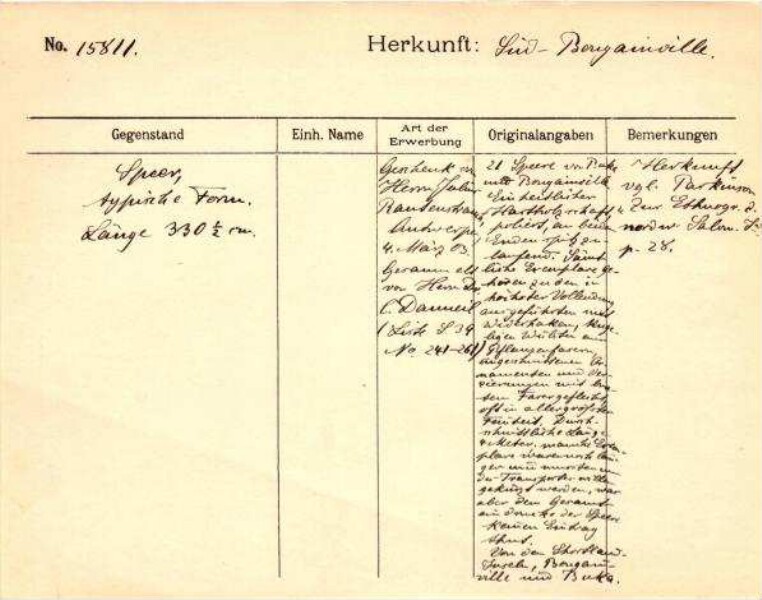 No. 15811. Herkunft: Süd-Bougainville.
Gegenstand
Einh. Name
Art der Erwerbung
Originalangaben
Bemerkungen
Speer,
typische Form.
Länge 330 ½ cm.
Geschenk von
Herrn Julius
Rautenstrauch,
Antwerpen
4. März 03.
Gesammelt
von Herrn Dr.
C. Danneil
(Liste S 39
No. 241-261)
21 Speere von Buka
und Bougainville
Einheitlicher
Hartholzschaft,
poliert, an beiden
Enden spitz zu-
laufend. Sämt-
liche Exemplare ge-
hören zu den in
höchster Vollendung
ausgeführten mit
Widerhaken, kuge-
ligen Wülsten aus
Pflanzenfasern,
eingeschnittenen Or-
namenten und Ver-
zierungen mit
Fasergeflecht,
oft in allergrösster
Feinheit. Durch-
schnittliche Länge
4 Meter. manche Exem-
plare waren noch län-
ger und mussten um
des Transportes willen
gekürzt werden, was
aber dem Gesamt-
eindrucke der Speere
keinen Eintrag
thut.
Von den Shortland-
Inseln, Bougain-
ville und Buka.
Herkunft
vgl. Parkinson
"Zur Ethnogr. d.
nordw. Salom. I."
p. 28.